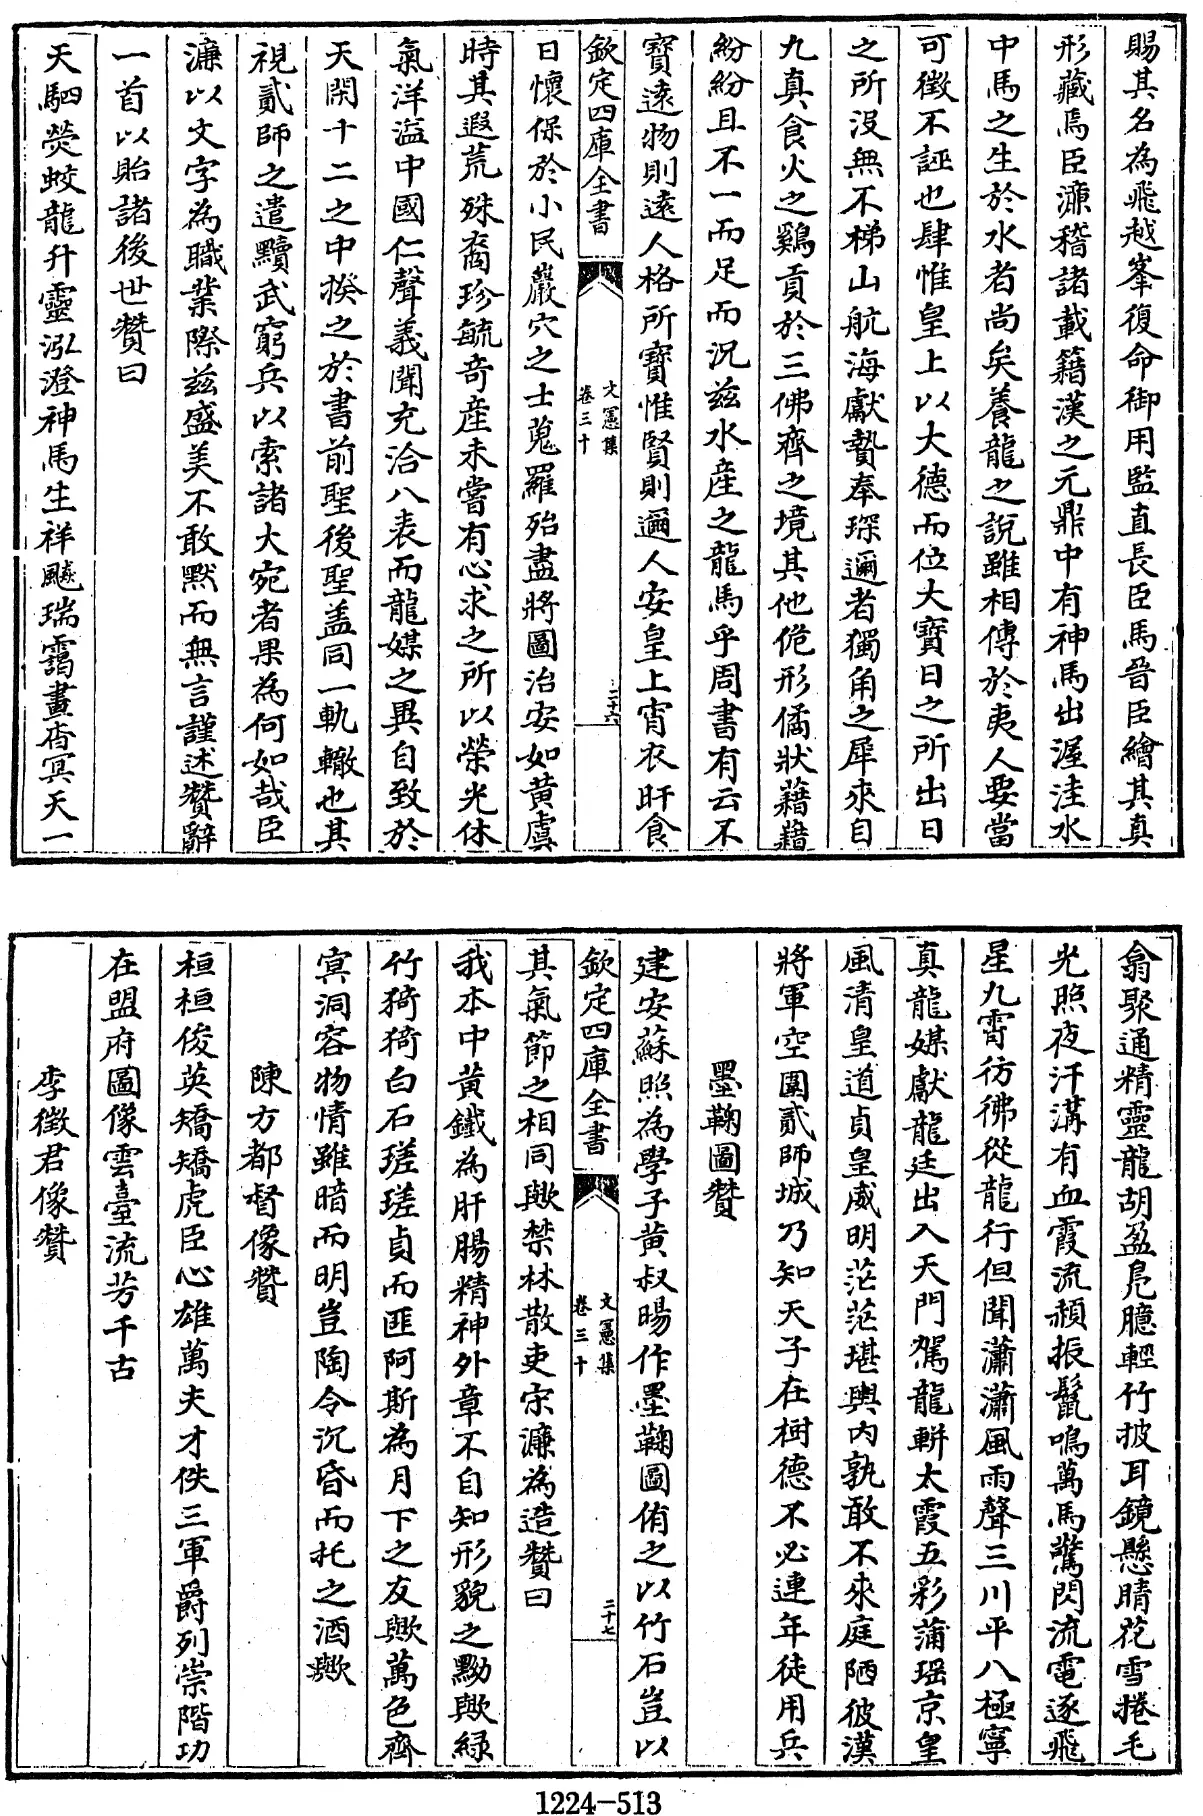 賜其名為飛越峯復命御用監直長臣馬晉臣繪其真
形藏焉臣濂稽諸載籍漢之元鼎中有神馬出渥洼水
中馬之生於水者尚矣養龍之說雖相傳於夷人要當
可徵不誣也肆惟皇上以大德而位大寶日之所出日
之所沒無不梯山航海獻贄奉琛邇者獨角之犀來自
九真食火之鷄貢於三佛齊之境其他佹形僪狀藉藉
紛紛且不一而足而況兹水産之龍馬乎周書有云不
寶遠物則遠人格所寶惟賢則邇人安皇上宵衣旰食
欽定四庫全書
文憲集
卷三十
二十六
日懷保於小民巖穴之士蒐羅殆盡將圖治安如黄虞
時其遐荒殊裔珍毓奇産未嘗有心求之所以榮光休
氣洋溢中國仁聲義聞充洽八表而龍媒之異自致於
天閑十二之中揆之於書前聖後聖盖同一軌轍也其
視貳師之遣黷武窮兵以索諸大宛者果為何如哉臣
濂以文字為職業際兹盛美不敢默而無言謹述贊辭
一首以貽諸後世贊曰
天駟熒蛟龍升靈泓澄神馬生祥飈瑞靄晝杳冥天一
翕聚通精靈龍胡盈鳬臆輕竹披耳鏡懸睛花雪捲毛
光照夜汗溝有血霞流頳振鬛鳴萬馬驚閃流電逐飛
星九霄彷彿從龍行但聞瀟瀟風雨聲三川平八極寧
真龍媒獻龍廷出入天門駕龍軿太霞五彩蒲瑶京皇
風清皇道貞皇威明茫茫堪輿内孰敢不來庭陋彼漢
將軍空圍貳師城乃知天子在樹德不必連年徒用兵
墨鞠圖贊
建安蘇照為學子黄叔暘作墨鞠圖侑之以竹石豈以
欽定四庫全書
文憲集
卷三十
二十七
其氣節之相同歟禁林散吏宋濂為造贊曰
我本中黄鐵為肝腸精神外章不自知形貌之黝歟緑
竹猗猗白石瑳瑳貞而匪阿斯為月下之友歟萬色齊
冥洞容物情雖暗而明豈陶令沉昏而托之酒歟
陳方都督像贊
桓桓俊英矯矯虎臣心雄萬夫才佚三軍爵列崇階功
在盟府圖像雲臺流芳千古
李徵君像贊
1224—513